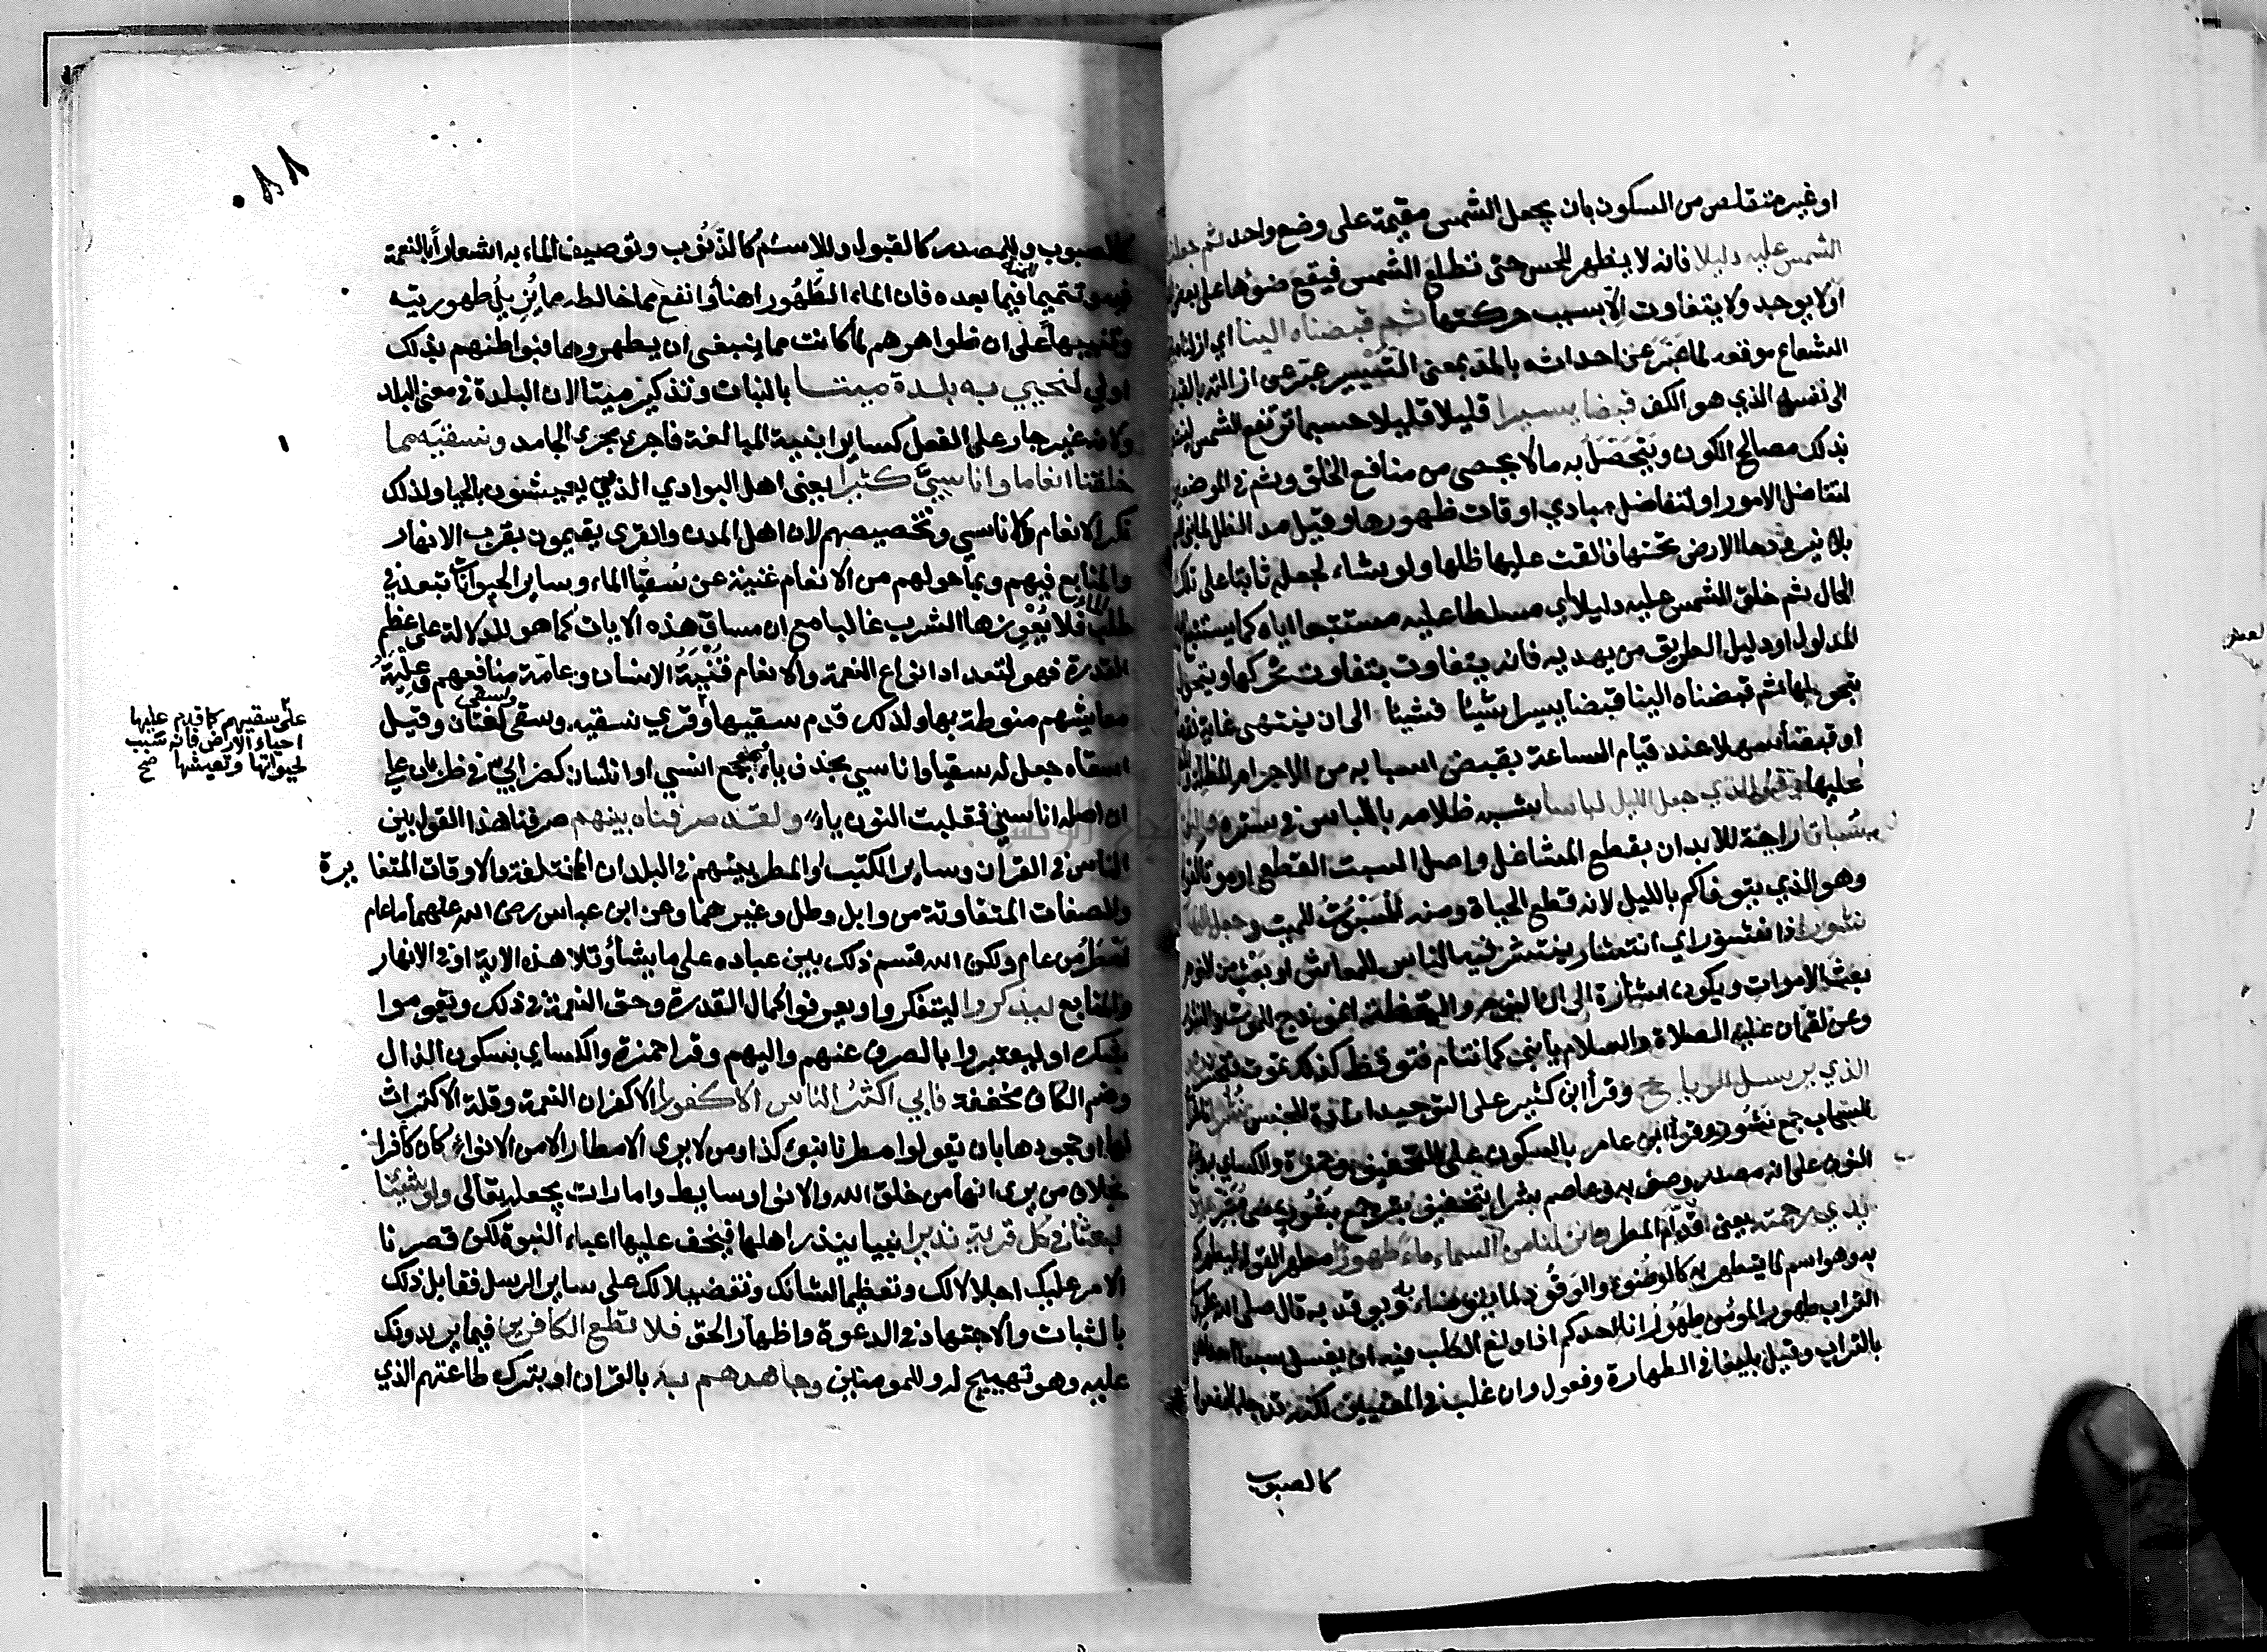 او غير متقلص من السكون بان يجعل الشمس مقيمة على وضع واحد ثم جعلنا
الشمس عليه دليلا فانه لا يظهر للحس حتى تطلع الشمس فيقع ضوئها على بعض
اولا يوجد ولا يتفاوت الا بسبب حركتها ثم قبضناه الينا اي ازلناه
الشعاع موقعه لما عبر عن احداثه بالمد بمعنى التسيير عبر عن ازالته بالقبض
الى نفسه الذي هو الكف قبضا يسيرا قليلا قليلا حسبما ترتفع الشمس لينتظم
بذلك مصالح الكون ويتحصل به ما لا يحصى من منافع الخلق وثم في الموضعين
لتفاضل الامور او لتفاضل مبادي اوقات ظهورها وقيل مد الظل لما بنى
بلا نير ودحا الارض تحتها فالقت عليها ظلها ولو شاء لجعله ثابتا على تلك
الحال ثم خلق الشمس عليه دليلا اي مسلطا عليه مستتبعا اياه كما يستتبع
المدلول او دليل الطريق من يهديه فانه يتفاوت بتفاوت حركتها ويتحول
بتحولها ثم قبضناه الينا قبضا يسيرا شيئا فشيئا الى ان ينتهى غاية نقصانه
او قبضا سهلا عند قيام الساعة بقبض اسبابه من الاجرام المظلة
عليها وهو الذي جعل الليل لباسا شبه ظلامه باللباس في ستره والنوم
سباتا راحة للابدان بقطع المشاغل واصل السبت القطع او موتا لقوله
وهو الذي يتوفاكم بالليل لانه قطع الحياة ومنه المسبوت للميت وجعل النهار
نشورا ذا نشور اي انتشار ينتشر فيه الناس للمعاش او بعث من النوم
بعث الاموات ويكون اشارة الى ان النوم واليقظة انموذج الموت والنشور
وعن لقمان عليه الصلاة والسلام يا بنى كما تنام فتوقظ كذلك تموت فتنشر
الذي يرسل الرياح وقرأ ابن كثير على التوحيد ارادة للجنس نشرا
السحاب جمع نشور وقرأ ابن عامر بالسكون على التخفيف وحمزة والكسائي به وبفتح
النون على انه مصدر وصف به وعاصم بشرا تخفيف بشر جمع بشور بمعنى مبشر بين
يدي رحمته يعنى قدام المطر وانزلنا من السماء ماء طهورا مطهرا لقوله ليطهركم
به وهو اسم لما يتطهر به كالوضوء والوقود لما يتوضاء به ويوقد به قال صلى الله عليه
التراب طهور المؤمن طهور اناء احدكم اذا ولغ الكلب فيه ان يغسل سبعا احداهن
بالتراب وقيل بليغا في الطهارة وفعول وان غلب في المعنيين لكنه قد جاء للمفعول
كالصبوب
٠٨٨
كالصبوب وللمصدر كالقبول وللاسم كالذنوب وتوصيف الماء به اشعارا بالنعمة
فيه وتتميما للمنة فيما بعده فان الماء الطهور اهنأ وانفع مما خالطه ما يزيل طهوريته
وتنبيها على ان ظواهرهم لما كانت مما ينبغى ان يطهروها فبواطنهم بذلك
اولى لنحيي به بلدة ميتا بالنبات وتذكير ميتا لان البلدة في معنى البلد
ولانه غير جار على الفعل كساير ابنية المبالغة فاجرى مجرى الجامد ونسقيه مما
خلقنا انعاما واناسي كثيرا يعنى اهل البوادي الذين يعيشون بالحيا ولذلك
نكر الانعام والاناسي وتخصيصهم لان اهل المدن والقرى يقيمون بقرب الانهار
والمنابع فبهم وبما حولهم من الانعام غنية عن سقيا الماء وساير الحيوانات تبعد في
طلب الماء فلا يعوزها الشرب غالبا مع ان مساق هذه الايات كما هو للدلالة على عظم
القدرة فهو لتعداد انواع النعمة والانعام قنية الانسان وعامة منافعهم وعلية
معايشهم منوطة بها ولذلك قدم سقيها وقري نسقيه وسقى واسقى لغتان وقيل
على سقيهم كما قدم عليها
احياء الارض فانه سبب
لحيوتها وتعيشها صح
اسقاه جعل له سقيا واناسي بحذف ياء وهو جمع انسي او انسان كظرابي في ظربان على
ان اصله اناسين فقلبت النون ياء ولقد صرفناه بينهم صرفنا هذا القول بين
الناس في القرآن وساير الكتب او المطر بينهم في البلدان المختلفة والاوقات المتغايرة
والصفات المتفاوتة من وابل وطل وغيرهما وعن ابن عباس رضى الله عنهما ما عام
امطر من عام ولكن الله قسم ذلك بين عباده على ما يشاء وتلا هذه الاية او في الانهار
والمنابع ليذكروا ليتفكروا ويعرفوا كمال القدرة وحق النعمة في ذلك ويقوموا
بشكره او ليعتبروا بالصرف عنهم واليهم وقرا حمزة والكسائي بسكون الذال
وضم الكاف مخففة فابى اكثر الناس الا كفورا الا كفران النعمة وقلة الاكتراث
لها او جحودها بان يقولوا مطرنا بنوء كذا ومن لا يرى الامطار الا من الانواء كان كافرا
بخلاف من يرى انها من خلق الله والانواء وسايط وامارات بجعله تعالى ولو شئنا
لبعثنا في كل قرية نذيرا نبيا ينذر اهلها فيخف عليها اعباء النبوة لكن قصرنا
الامر عليك اجلالا لك وتعظيما لشانك وتفضيلا لك على ساير الرسل فقابل ذلك
بالثبات والاجتهاد في الدعوة واظهار الحق فلا تطع الكافرين فيما يريدونك
عليه وهو تهييج له وللمومنين وجاهدهم به بالقران او بترك طاعتهم الذي